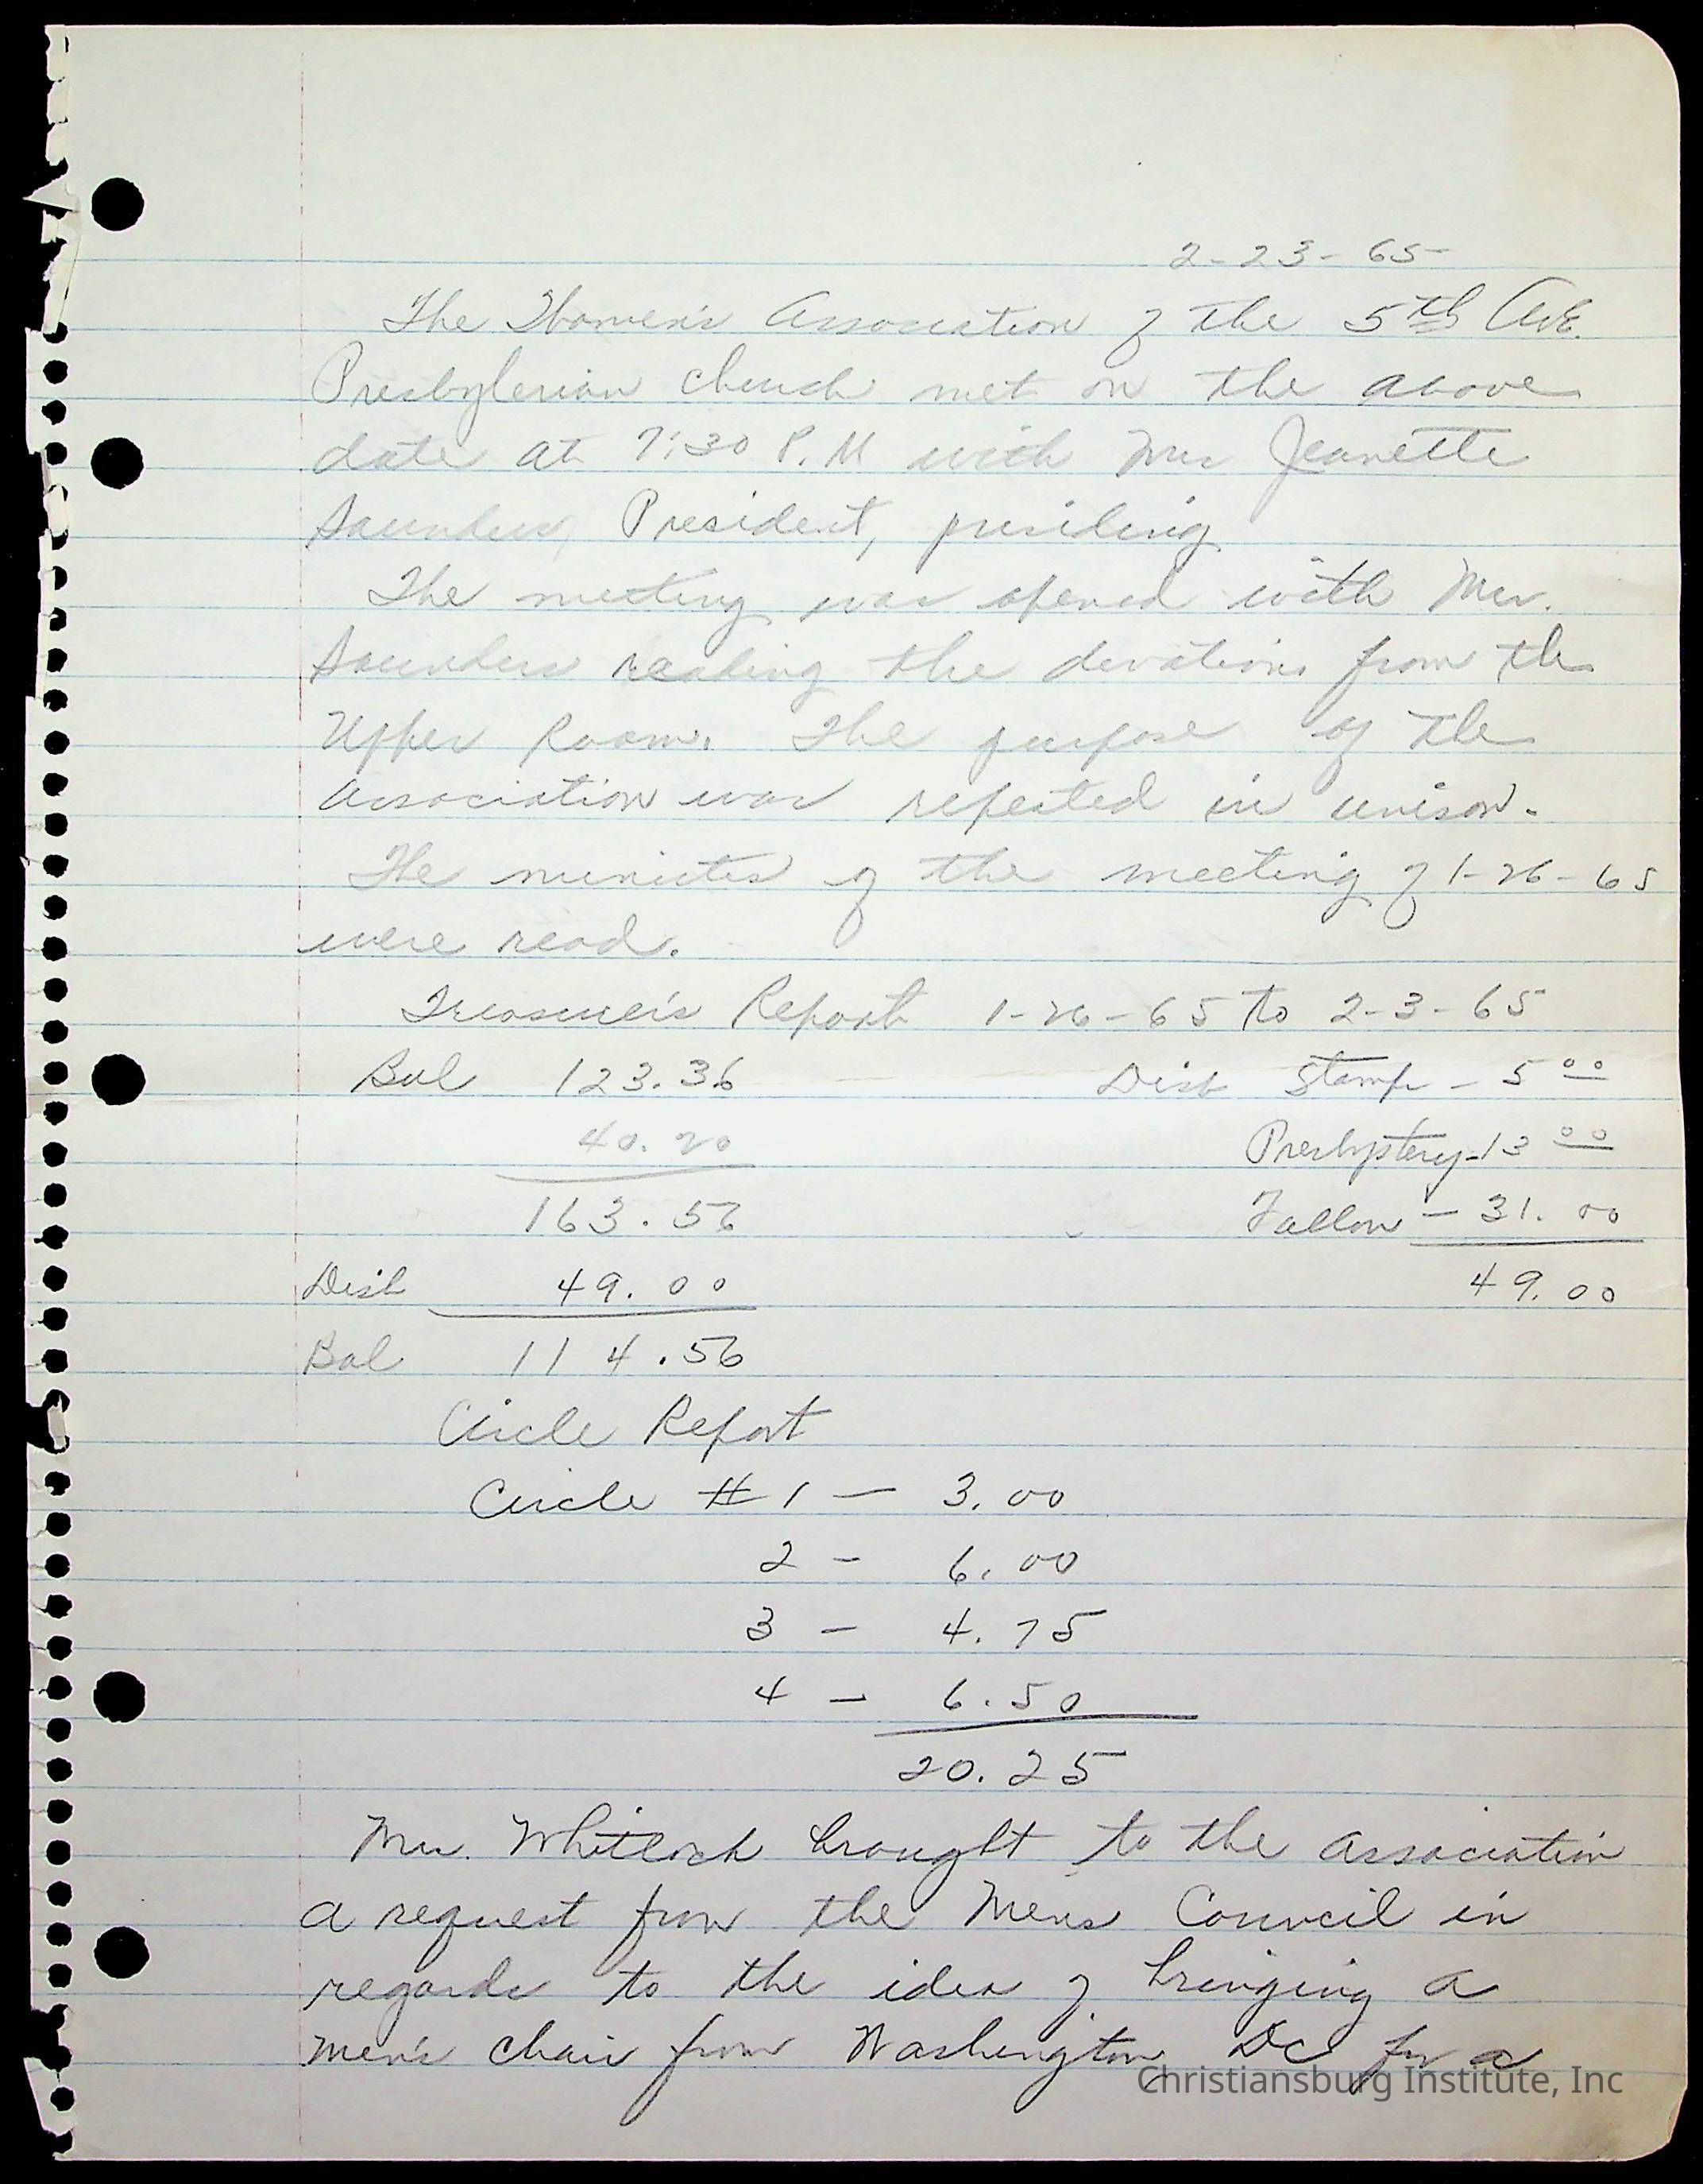 2-23-65
The Women's Association of the 5th Ave.
Presbyterian church met on the above
date at 7:30 P.M with Mrs Jeanette
Saunders, President, presiding.
The meeting was opened with Mrs.
Saunders reading the devotions from the
Upper Room. The purpose of the
Association was repeated in unison.
The minutes of the meeting of 1-26-65
were read.
Treasurer's Report 1-26-65 to 2-3-65
Bal 123.36 Disb Stamp - 5 00
40.20 Presbystery - 13 00
163.56 Fallow - 31.00
Disb 49.00 49.00
Bal 114.56
Circle Report
Circle # 1 — 3.00
2 - 6.00
3 - 4.75
4 - 6.50
20.25
Mrs. Whitlock brought to the association
a request from the Mens Council in
regards to the idea of bringing a
men's chair from Washington DC for a
Christiansburg Institute, Inc